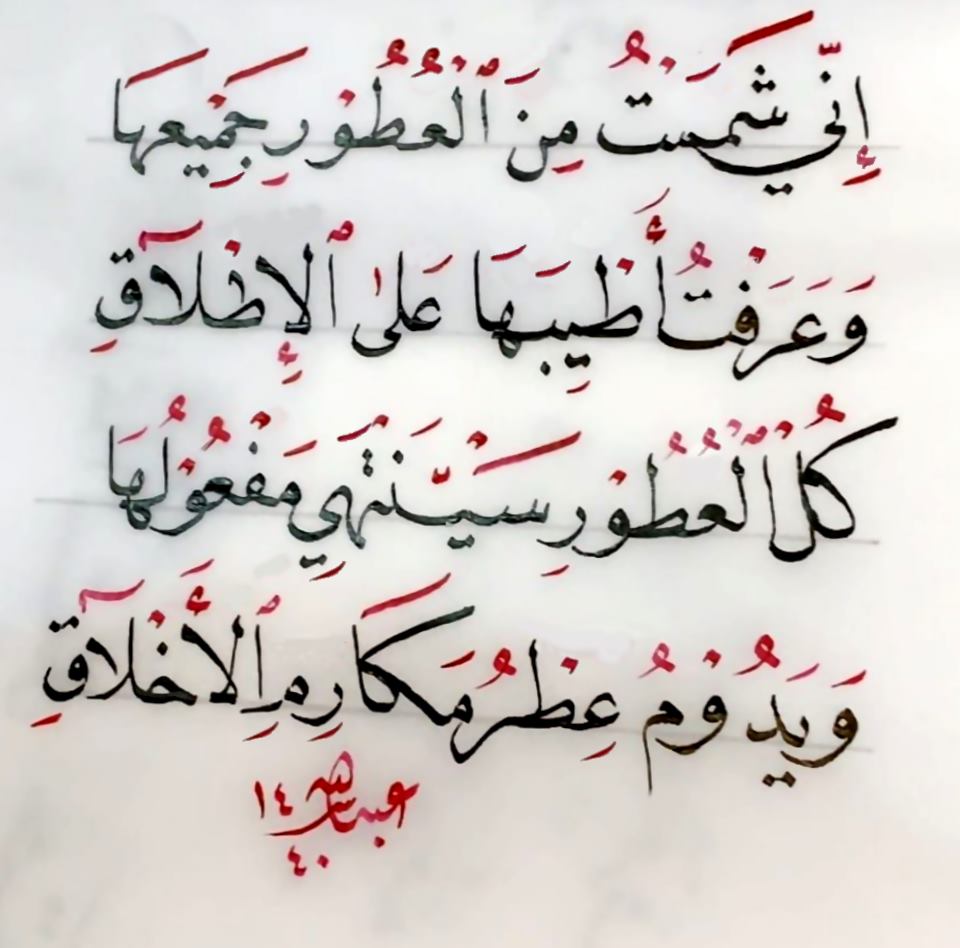 إِنِّي شَمَمْتُ مِنَ ٱلْعُطُورِ جَمِيعَهَا
وَعَرَفْتُ أَطْيَبَهَا عَلَى ٱلْإِطْلَاقِ
كُلُّ ٱلْعُطُورِ سَيَنْتَهِي مَفْعُولُهَا
وَيَدُومُ عِطْرُ مَكَارِمِ ٱلْأَخْلَاقِ
عبدالله ١٤
٤٠